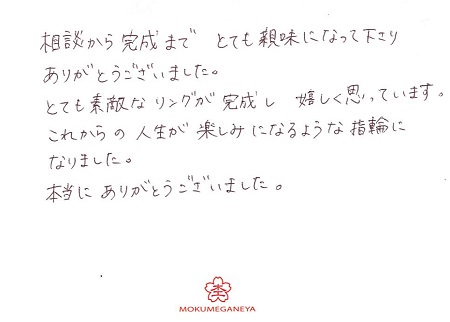 相談から完成まで とても親味になって下さり
ありがとうございました。
とても素敵なリングが完成し 嬉しく思っています。
これからの人生が楽しみになるような指輪に
なりました。
本当にありがとうございました。
MOKUMEGANEYA